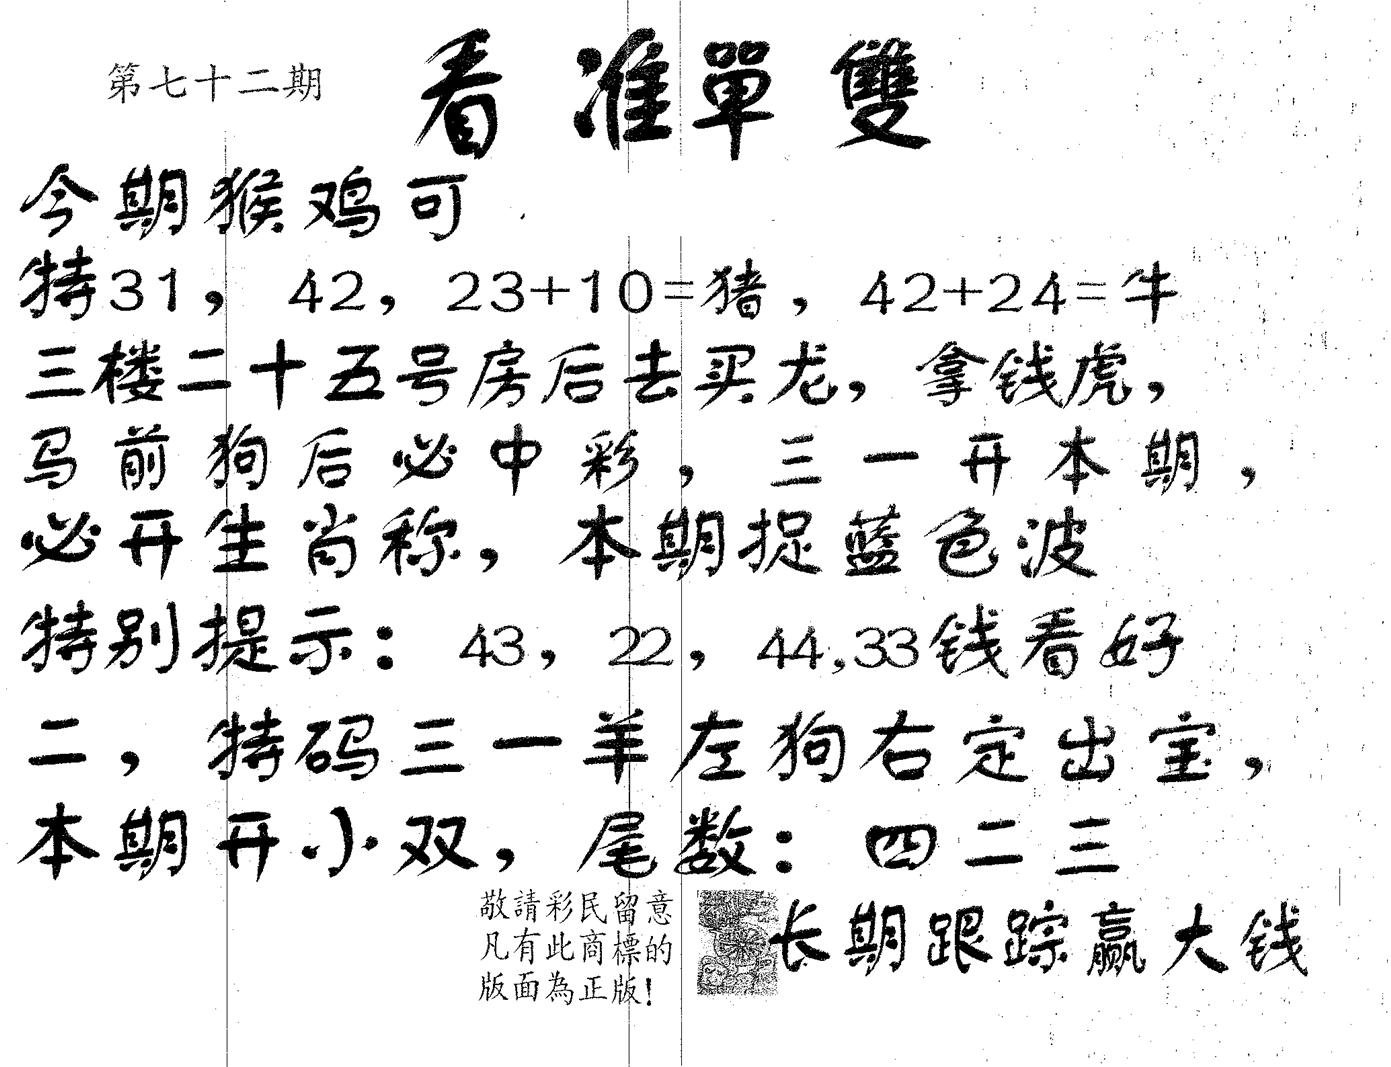 第七十二期
看准單雙
今期猴鸡可
特31，42，23+10=猪，42+24=牛
三楼二十五号房后去买龙，拿钱虎，
马前狗后必中彩，三一开本期，
必开生肖称，本期捉蓝色波
特别提示：43，22，44,33钱看好
二，特码三一羊左狗右定出宝，
本期开小双，尾数：四二三
敬請彩民留意
凡有此商標的
版面為正版!
长期跟踪赢大钱